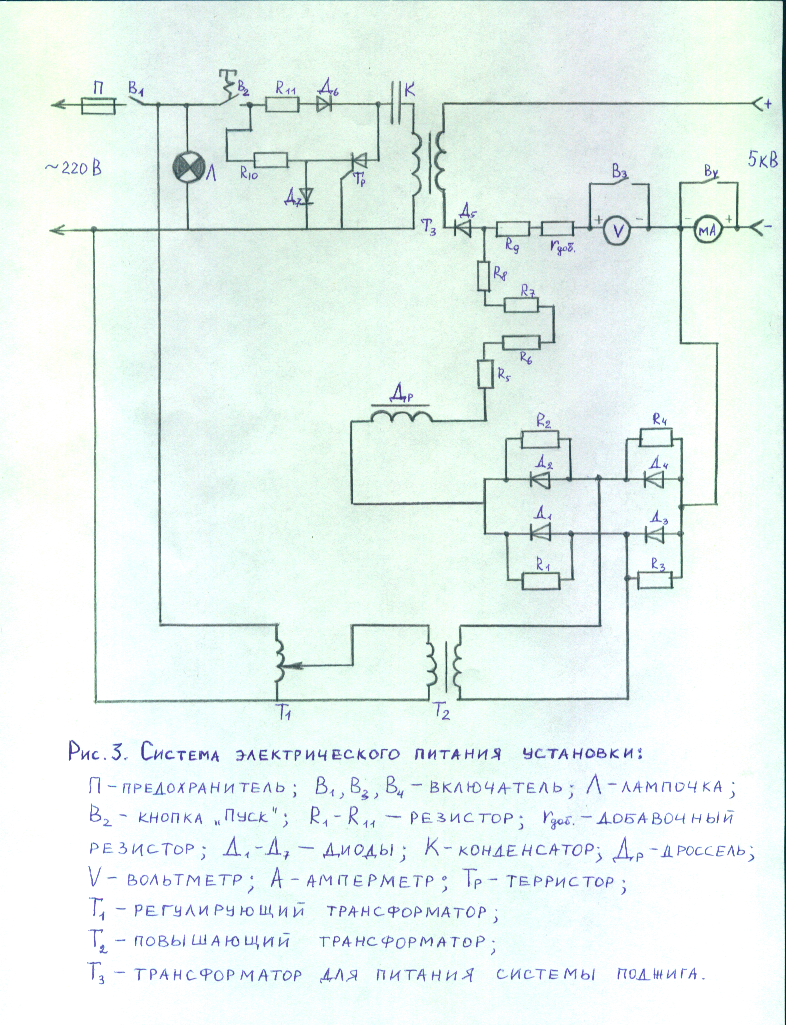 П В₁ В₂ R₁₁ Д₆ К +
~220 В Л R₁₀ Д₇ Тр В₃ Ву 5кВ
Т₃ Д₅ R₉ rдоб. + V − − мА + −
R₈
R₇
R₆
R₅
Др
R₂ R₄
Д₂ Д₄
Д₁ Д₃
R₁ R₃
Т₁ Т₂
Рис. 3. Система электрического питания установки:
П – предохранитель; В₁, В₃, В₄ – включатель; Л – лампочка;
В₂ – кнопка „Пуск"; R₁ – R₁₁ – резистор; rдоб. – добавочный
резистор; Д₁-Д₇ – диоды; К – конденсатор; Др – дроссель;
V – вольтметр; А – амперметр; Тр – терристор;
Т₁ – регулирующий трансформатор;
Т₂ – повышающий трансформатор;
Т₃ – трансформатор для питания системы поджига.